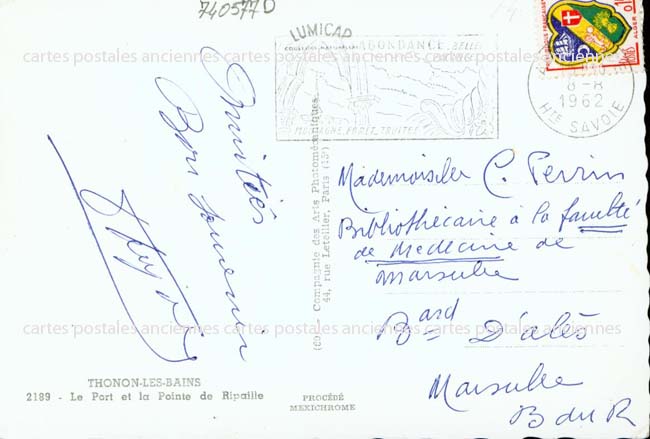 740577D
LUMICAP
COULEURS NATURELLES
ABONDANCE
MONTAGNE, FORÊT, TRUITES
ALGER
0,1
8-8
1962
HTE SAVOIE
cartes postales anciennes cartes postales anciennes cartes postales anciennes
Amitiés
Bon souvenir
(69) - Compagnie des Arts Photomécaniques
44, rue Letellier, Paris (15e)
Mademoiselle C. Perrin
Bibliothécaire à la faculté
de Medecine de
Marseille
Bard D'alès
Marseille
B du R
cartes postales anciennes cartes postales anciennes cartes postales anciennes
THONON-LES-BAINS
2189 - Le Port et la Pointe de Ripaille
PROCÉDÉ
MEXICHROME